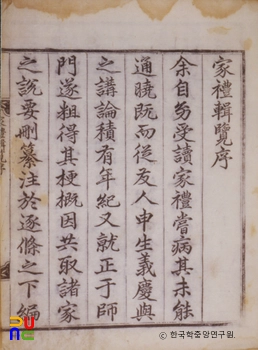 家禮輯覽序
余自㓜受讀家禮嘗病其未能
通曉既而從友人申生義慶與
之講論積有年紀又就正于師
門遂粗得其梗概因共取諸家
之說要刪纂注於逐條之下編
ⓒ 한국학중앙연구원.